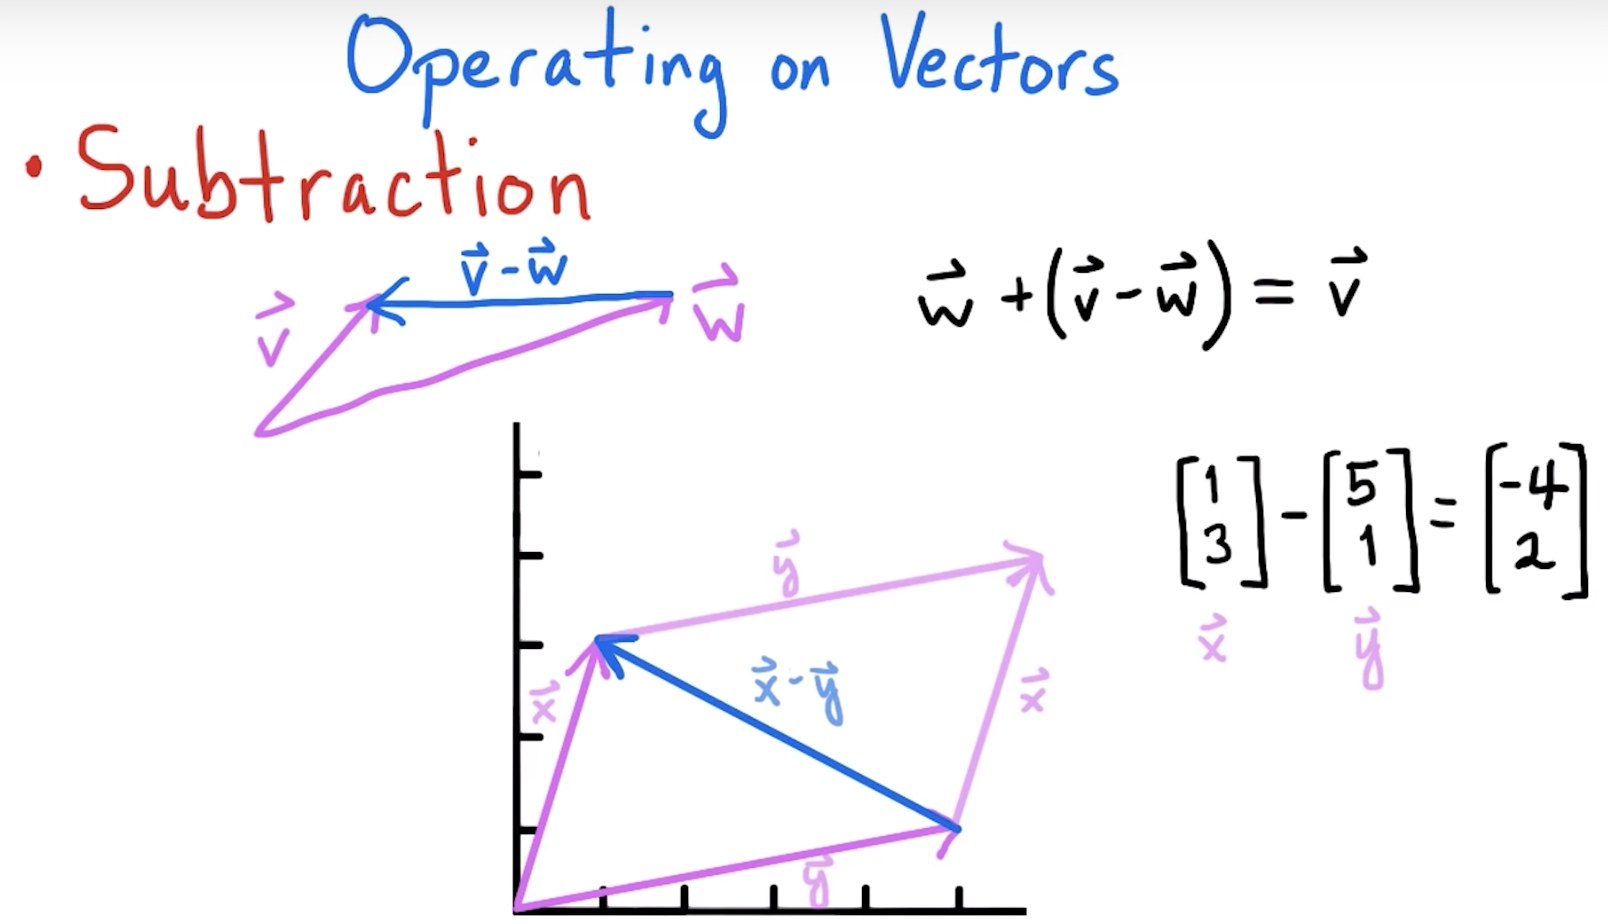 Operating on Vectors
• Subtraction
v⃗ - w⃗
v⃗
w⃗
w⃗ + (v⃗ - w⃗) = v⃗
[1 3] - [5 1] = [-4 2]
x⃗ y⃗
y⃗
x⃗
x⃗ - y⃗
x⃗
y⃗